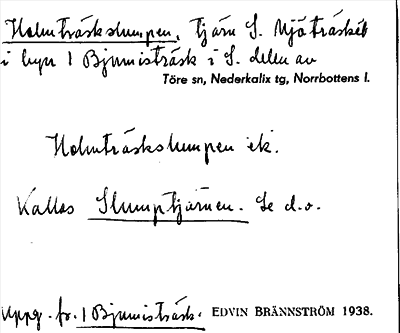 Holmträskslumpen, tjärn S. Njåträsket
i byn 1 Bjumisträsk i S. delen av
Töre sn, Nederkalix tg, Norrbottens l.
Holmträskslumpen ek.
Kallas Slumptjärnen. Se d.o.
Uppg. fr. 1 Bjumisträsk. EDVIN BRÄNNSTRÖM 1938.